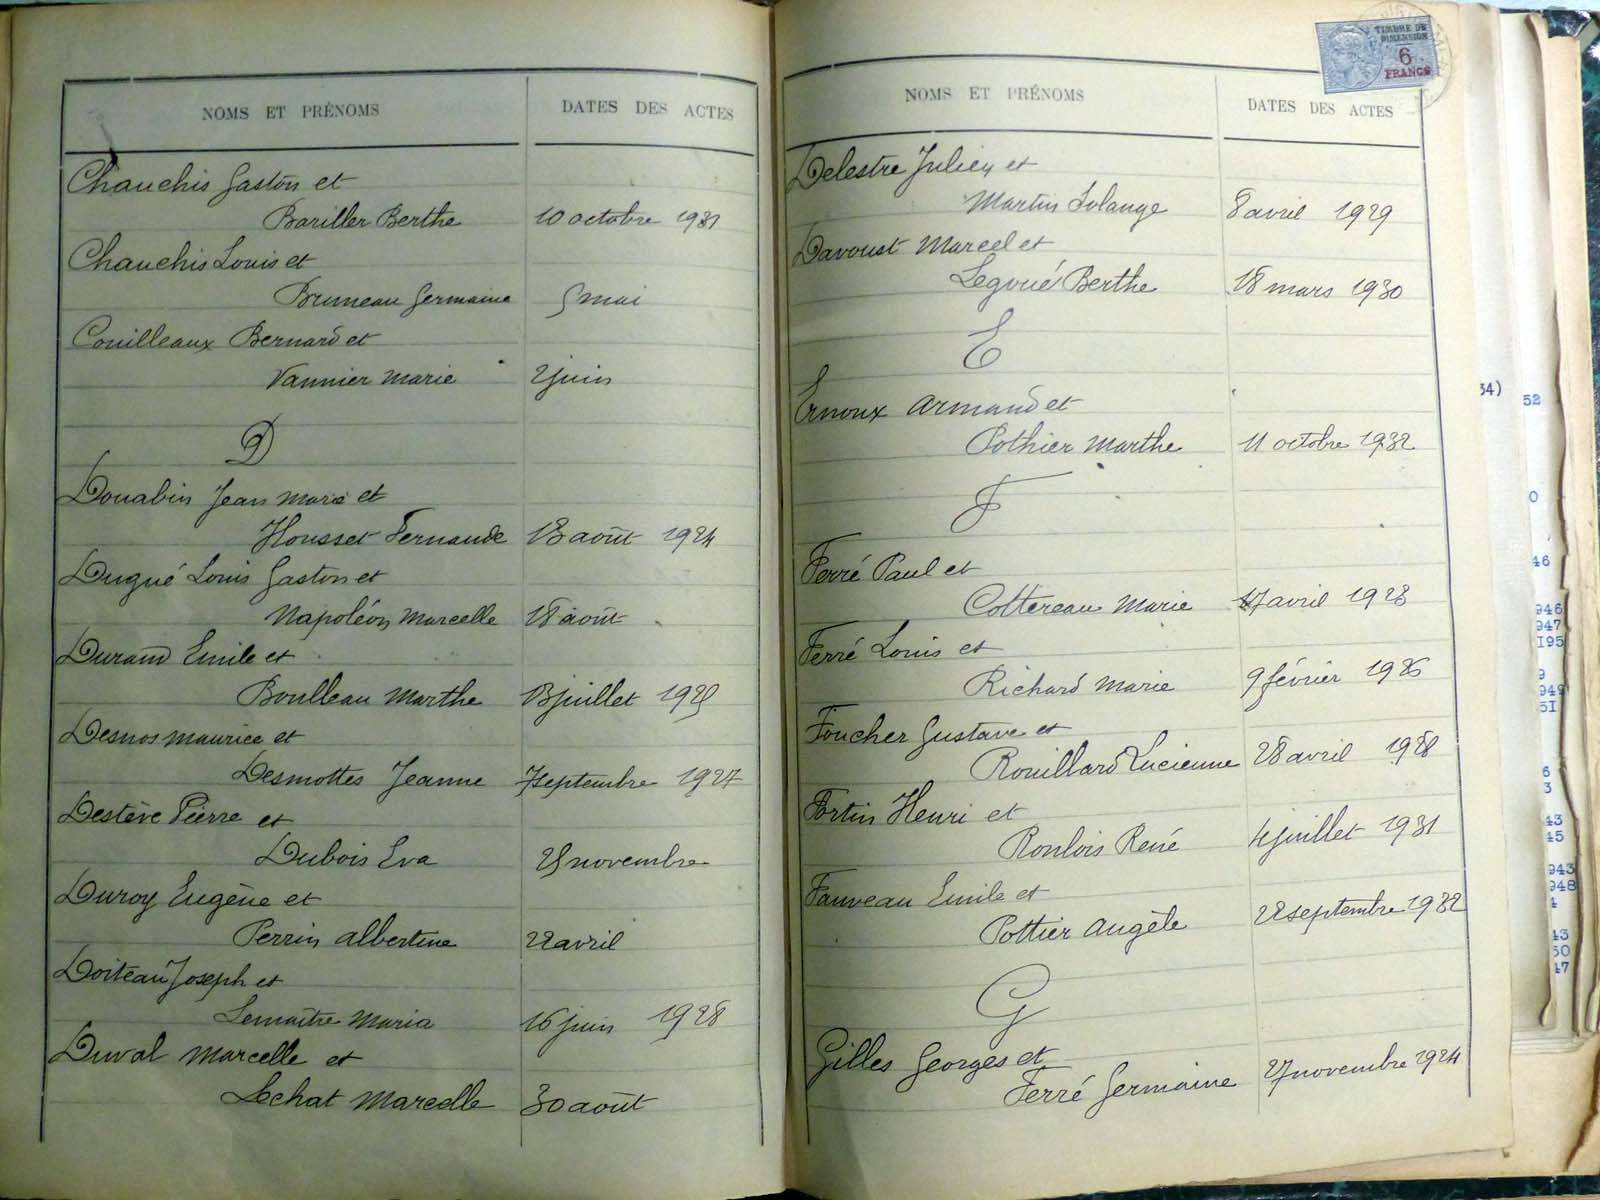 NOMS ET PRÉNOMS DATES DES ACTES
Chauchis Gaston et
Bariller Berthe 10 octobre 1931
Chauchis Louis et
Bruneau Germaine 5 mai
Couilleaux Bernard et
Vannier Marie 2 juin
D
Douabin Jean Marie et
Housset Fernande 18 août 1924
Dugué Louis Gaston et
Napoléon Marcelle 18 août
Durand Emile et
Boulleau Marthe 13 juillet 1925
Desnos Maurice et
Desmottes Jeanne 7 septembre 1927
Destève Pierre et
Dubois Eva 25 novembre
Duroy Eugène et
Perrin Albertine 22 avril
Doiteau Joseph et
Lemaître Maria 16 juin 1928
Duval Marcelle et
Lechat Marcelle 30 août
TIMBRE DE
DIMENSION
6
FRANCS
NOMS ET PRÉNOMS DATES DES ACTES
Delestre Julien et
Martin Solange 8 avril 1929
Davoust Marcel et
Legoué Berthe 18 mars 1930
E
Ernoux Armand et
Pothier Marthe 11 octobre 1932
F
Ferré Paul et
Cottereau Marie 17 avril 1923
Ferré Louis et
Richard Marie 9 février 1926
Foucher Gustave et
Rouillard Lucienne 28 avril 1928
Fortin Henri et
Ronlois René 4 juillet 1931
Fauveau Emile et
Pottier Angèle 22 septembre 1932
G
Gilles Georges et
Ferré Germaine 27 novembre 1924
34)
52
0
46
946
947
195
9
949
51
6
3
43
45
943
948
43
50
47